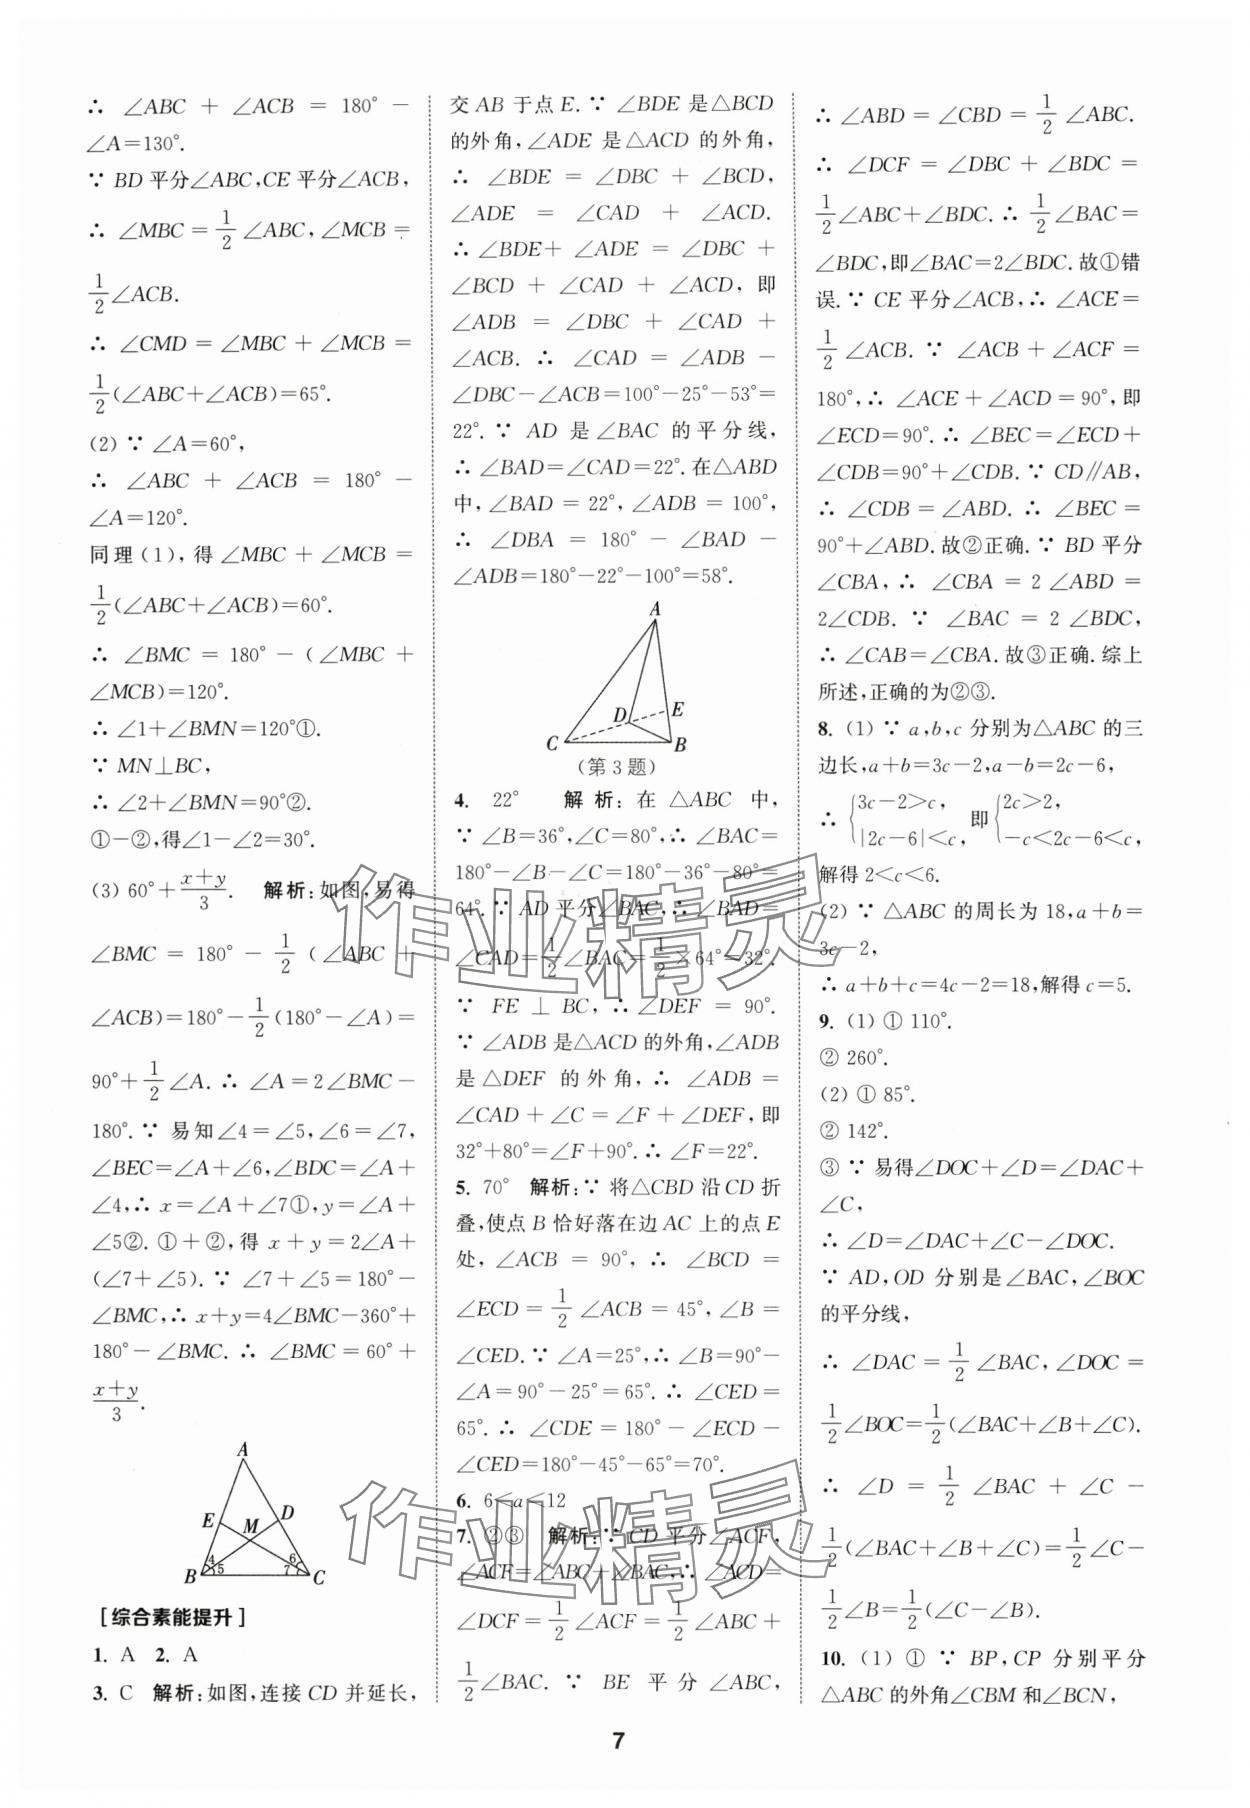 ∴ ∠ABC + ∠ACB = 180° −
∠A=130°.
∵ BD平分∠ABC,CE平分∠ACB,
∴ ∠MBC = 1/2 ∠ABC, ∠MCB =
1/2 ∠ACB.
∴ ∠CMD = ∠MBC + ∠MCB =
1/2(∠ABC+∠ACB)=65°.
(2) ∵ ∠A=60°,
∴ ∠ABC + ∠ACB = 180° −
∠A=120°.
同理(1),得∠MBC+∠MCB=
1/2(∠ABC+∠ACB)=60°.
∴ ∠BMC = 180° − (∠MBC +
∠MCB)=120°.
∴ ∠1+∠BMN=120°①.
∵ MN⊥BC,
∴ ∠2+∠BMN=90°②.
①−②,得∠1−∠2=30°.
(3) 60°+(x+y)/3. 解析:如图,易得
∠BMC = 180° − 1/2 (∠ABC +
∠ACB)=180°−1/2(180°−∠A)=
90°+1/2∠A. ∴ ∠A=2∠BMC−
180°. ∵ 易知∠4=∠5,∠6=∠7,
∠BEC=∠A+∠6,∠BDC=∠A+
∠4,∴ x=∠A+∠7①,y=∠A+
∠5②. ①+②,得 x+y=2∠A+
(∠7+∠5). ∵ ∠7+∠5=180°−
∠BMC,∴ x+y=4∠BMC−360°+
180°−∠BMC. ∴ ∠BMC=60°+
(x+y)/3.
A
E
D
M
B
4
5
6
7
C
[综合素能提升]
1. A 2. A
3. C 解析:如图,连接CD并延长,
交AB于点E. ∵ ∠BDE是△BCD
的外角,∠ADE是△ACD的外角,
∴ ∠BDE = ∠DBC + ∠BCD,
∠ADE = ∠CAD + ∠ACD.
∴ ∠BDE+ ∠ADE = ∠DBC +
∠BCD + ∠CAD + ∠ACD, 即
∠ADB = ∠DBC + ∠CAD +
∠ACB. ∴ ∠CAD = ∠ADB −
∠DBC−∠ACB=100°−25°−53°=
22°. ∵ AD 是∠BAC 的平分线,
∴ ∠BAD=∠CAD=22°. 在△ABD
中,∠BAD=22°,∠ADB=100°,
∴ ∠DBA = 180° − ∠BAD −
∠ADB=180°−22°−100°=58°.
A
D
E
C
B
(第3题)
4. 22° 解析:在△ABC中,
∵ ∠B=36°,∠C=80°,∴ ∠BAC=
180°−∠B−∠C=180°−36°−80°=
64°. ∵ AD平分∠BAC,∴ ∠BAD=
∠CAD=1/2∠BAC=1/2×64°=32°.
∵ FE ⊥ BC, ∴ ∠DEF = 90°.
∵ ∠ADB是△ACD的外角,∠ADB
是△DEF的外角,∴ ∠ADB =
∠CAD+∠C=∠F+∠DEF,即
32°+80°=∠F+90°. ∴ ∠F=22°.
5. 70° 解析:∵ 将△CBD沿CD折
叠,使点B恰好落在边AC上的点E
处,∠ACB = 90°, ∴ ∠BCD =
∠ECD=1/2 ∠ACB = 45°, ∠B =
∠CED. ∵ ∠A=25°,∴ ∠B=90°−
∠A=90°−25°=65°. ∴ ∠CED=
65°. ∴ ∠CDE = 180° − ∠ECD −
∠CED=180°−45°−65°=70°.
6. 6<a<12
7. ②③ 解析:∵ CD平分∠ACF,
∠ACF=∠ABC+∠BAC,∴ ∠ACD=
∠DCF=1/2∠ACF=1/2∠ABC+
1/2∠BAC. ∵ BE 平分∠ABC,
∴ ∠ABD=∠CBD=1/2∠ABC.
∴ ∠DCF = ∠DBC + ∠BDC =
1/2∠ABC+∠BDC. ∴ 1/2∠BAC=
∠BDC,即∠BAC=2∠BDC. 故①错
误. ∵ CE平分∠ACB,∴ ∠ACE=
1/2 ∠ACB. ∵ ∠ACB + ∠ACF =
180°,∴ ∠ACE+∠ACD=90°,即
∠ECD=90°. ∴ ∠BEC=∠ECD+
∠CDB=90°+∠CDB. ∵ CD∥AB,
∴ ∠CDB=∠ABD. ∴ ∠BEC=
90°+∠ABD. 故②正确. ∵ BD平分
∠CBA, ∴ ∠CBA = 2 ∠ABD =
2∠CDB. ∵ ∠BAC = 2 ∠BDC,
∴ ∠CAB=∠CBA. 故③正确. 综上
所述,正确的为②③.
8. (1) ∵ a,b,c分别为△ABC的三
边长,a+b=3c−2,a−b=2c−6,
∴ {3c−2>c, |2c−6|<c, 即 {2c>2, −c<2c−6<c,
解得2<c<6.
(2) ∵ △ABC的周长为18,a+b=
3c−2,
∴ a+b+c=4c−2=18,解得c=5.
9. (1) ① 110°.
② 260°.
(2) ① 85°.
② 142°.
③ ∵ 易得∠DOC+∠D=∠DAC+
∠C,
∴ ∠D=∠DAC+∠C−∠DOC.
∵ AD,OD分别是∠BAC,∠BOC
的平分线,
∴ ∠DAC=1/2∠BAC,∠DOC=
1/2∠BOC=1/2(∠BAC+∠B+∠C).
∴ ∠D = 1/2 ∠BAC + ∠C −
1/2(∠BAC+∠B+∠C)=1/2∠C−
1/2∠B=1/2(∠C−∠B).
10. (1) ① ∵ BP,CP分别平分
△ABC的外角∠CBM和∠BCN,
7
作业精灵
作业精灵